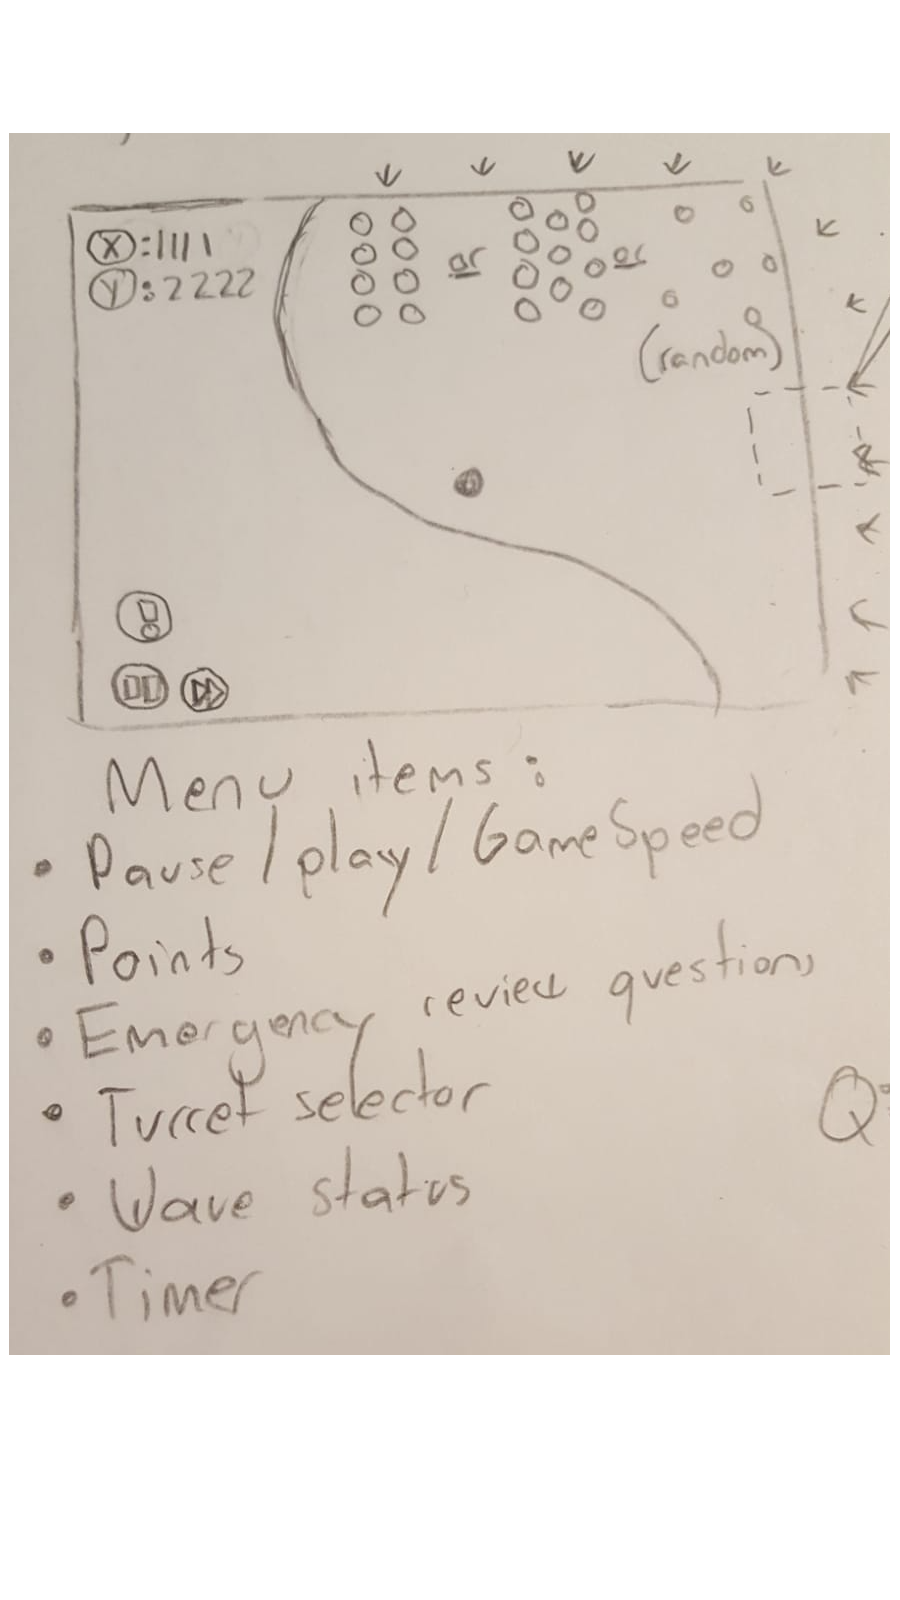 X:1111
Y:2222
or
or
(random)
Menu items:
• Pause/play/GameSpeed
• Points
• Emergency review questions
• Turret selector
• Wave status
• Timer
Q: